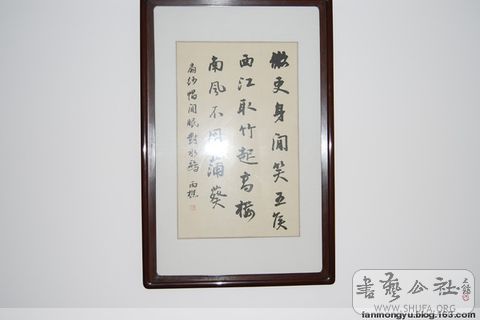 傲吏身閒笑五侯
西江取竹起高樓
南風不用蒲葵
扇紗帽閒眠對水鷗
書藝公社
WWW.SHUFA.ORG
fanmongyu.blog.163.com